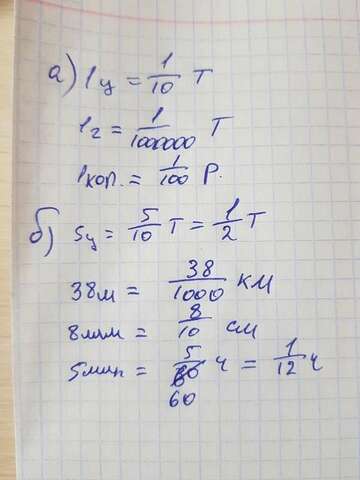 а) 1ц = 1/10 Т
1г = 1/1000000 Т
1коп. = 1/100 Р.
б) 5ц = 5/10 Т = 1/2 Т
38м = 38/1000 км
8мм = 8/10 см
5мин = 5/60 ч = 1/12 ч